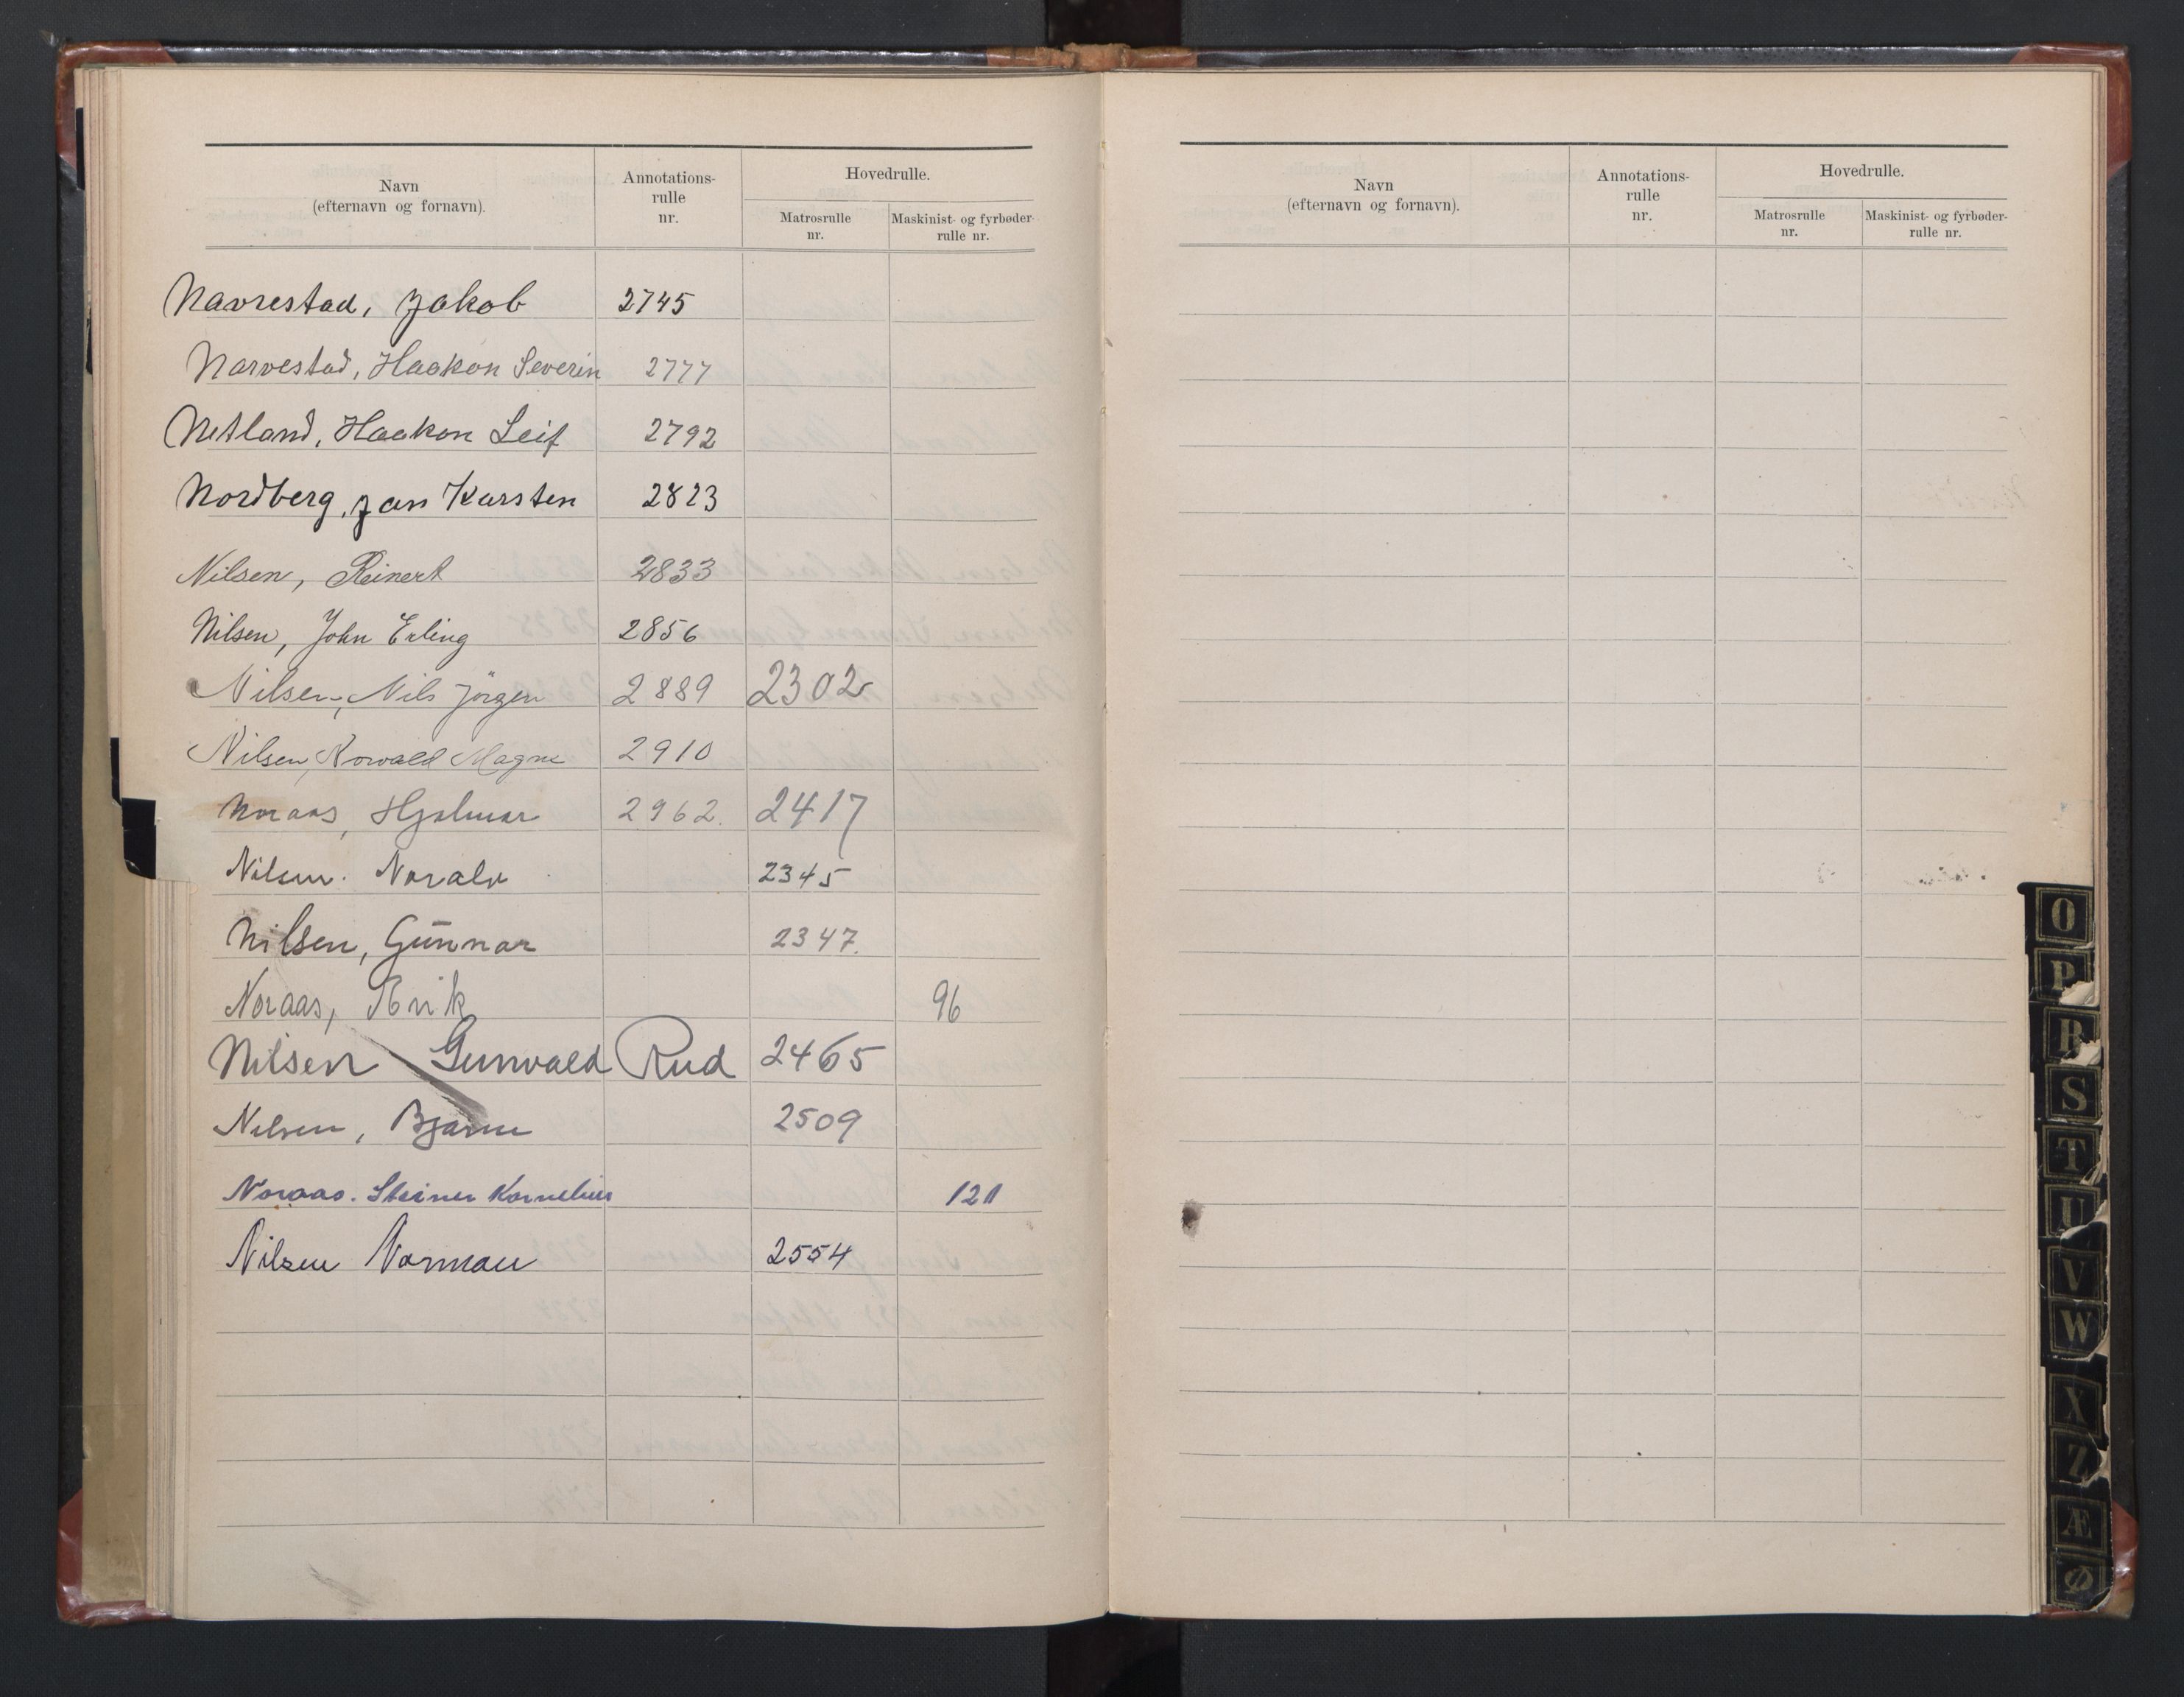 Navn
(efternavn og fornavn).
Annotations-
rulle
nr.
Hovedrulle.
Matrosrulle
nr.
Maskinist- og fyrbøder-
rulle nr.
Navrestad, Jakob 2745
Narvestad, Haakon Severin 2777
Netland, Haakon Leif 2792
Nordberg, Jan Karsten 2823
Nilsen, Reinert 2833
Nilsen, John Erling 2856
Nilsen, Nils Jörgen 2889 2302
Nilsen, Norvald Magne 2910
Noraas, Hjalmar 2962. 2417
Nilsen. Noralv 2345
Nilsen, Gunnar 2347.
Noraas, 96
Nilsen Gunvald Rud 2465
Nilsen, Bjarne 2509
Noraas. Steiner Kornelius 121
Nilsen Norman 2554
Navn
(efternavn og fornavn).
Annotations-
rulle
nr.
Hovedrulle.
Matrosrulle
nr.
Maskinist- og fyrbøder-
rulle nr.
O
P
R
S
T
U
V
W
X
Z
Æ
Ø